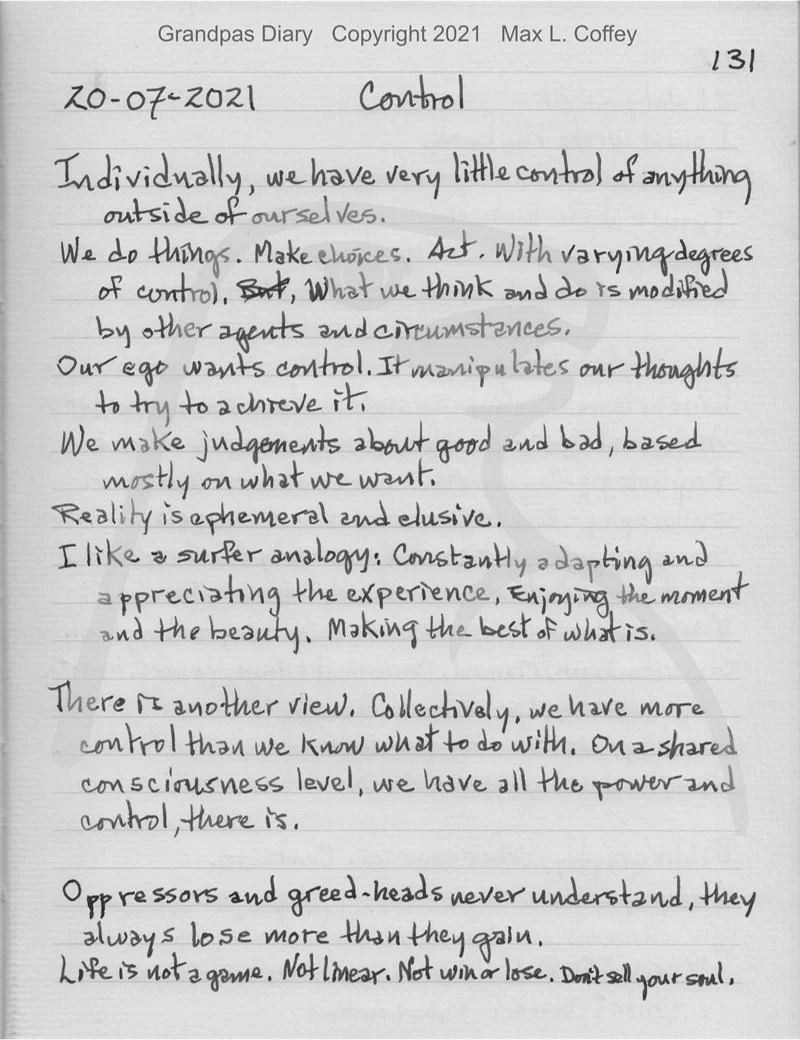 Grandpas Diary Copyright 2021 Max L. Coffey
131
20-07-2021 Control
Individually, we have very little control of anything
outside of ourselves.
We do things. Make choices. Act. With varying degrees
of control. But, What we think and do is modified
by other agents and circumstances.
Our ego wants control. It manipulates our thoughts
to try to achieve it.
We make judgements about good and bad, based
mostly on what we want.
Reality is ephemeral and elusive.
I like a surfer analogy: Constantly adapting and
appreciating the experience, Enjoying the moment
and the beauty. Making the best of what is.
There is another view. Collectively, we have more
control than we know what to do with. On a shared
consciousness level, we have all the power and
control, there is.
Oppressors and greed-heads never understand, they
always lose more than they gain.
Life is not a game. Not linear. Not win or lose. Don't sell your soul.